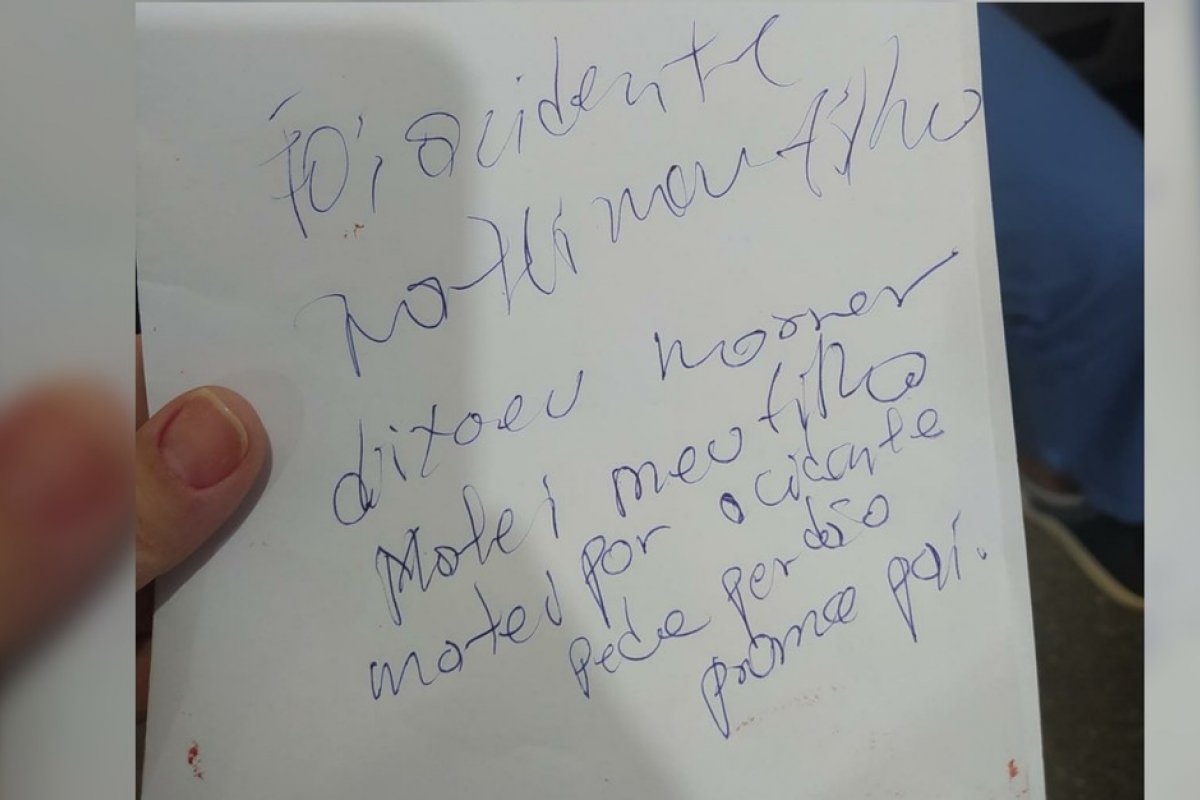 Foi acidente
Matei meu filho
dixaeu morrer
Matei meu filho
matei por acidente
pede perdão
prameo pai.